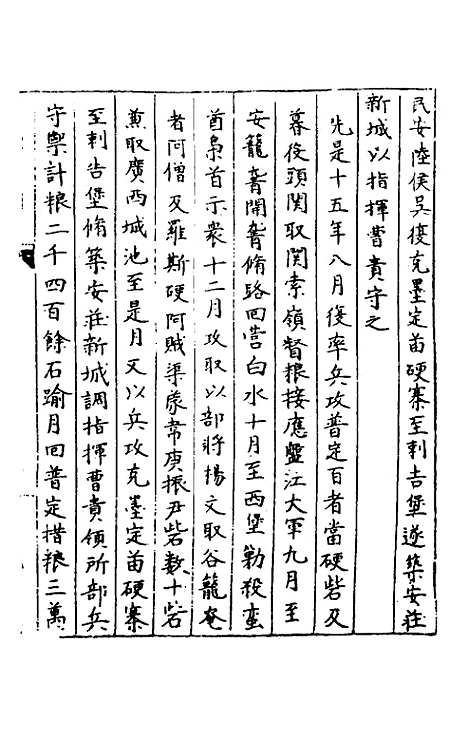 民安陸侯吳復克墨定苗硬寨至剌吉堡遂築安莊
新城以指揮曹貴守之
先是十五年八月復率兵攻普定百者當硬砦及
暮役頭関取関索嶺督粮接應盤江大軍九月至
安籠菁開菁脩路四营白水十月至西堡勦殺蛮
酋梟首示衆十二月攻取以部將揚文取谷籠奄
者阿僧及羅斯硬阿賊渠蒙常庚振尹砦数十砦
兼取廣西城池至是月又以兵攻克墨定苗硬寨
至剌吉堡脩築安莊新城調指揮曹貴領所部兵
守禦計粮二千四百餘石踰月回普定措粮三萬